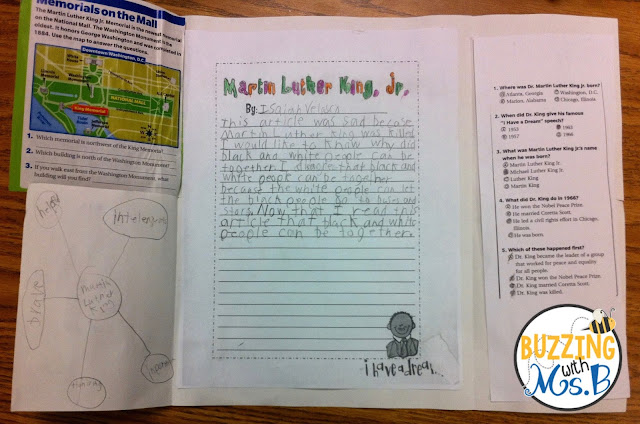 Memorials on the Mall
The Martin Luther King Jr. Memorial is the newest Memorial
on the National Mall. The Washington Monument is the
oldest. It honors George Washington and was completed in
1884. Use the map to answer the questions.
Downtown Washington, D.C.
NATIONAL MALL
King Memorial
1. Which memorial is northwest of the King Memorial?
2. Which building is north of the Washington Monument?
3. If you walk east from the Washington Monument, what
building will you find?
brave
Martin
Luther
King
Martin Luther King, Jr.
By: Isaiah
This article was sad becase
martin Luther king was killed
I would like to know why did
black and white people can be
together. I that black and
white people can be together
because the white people can let
the black people go to and
. Now that I read this
article that black and white
people can be together.
i have a dream...
1. Where was Dr. Martin Luther King Jr. born?
Atlanta, Georgia
Washington, D.C.
Marion, Alabama
Chicago, Illinois
2. When did Dr. King give his famous
"I Have a Dream" speech?
1953
1963
1957
1966
3. What was Martin Luther King Jr.'s name
when he was born?
Martin Luther King Jr.
Michael Luther King Jr.
Luther King
Martin King
4. What did Dr. King do in 1966?
He won the Nobel Peace Prize.
He married Coretta Scott.
He led a civil rights effort in Chicago,
Illinois.
He was born.
5. Which of these happened first?
Dr. King became the leader of a group
that worked for peace and equality
for all people.
Dr. King won the Nobel Peace Prize.
Dr. King married Coretta Scott.
Dr. King was killed.
BUZZING
with
Ms. B